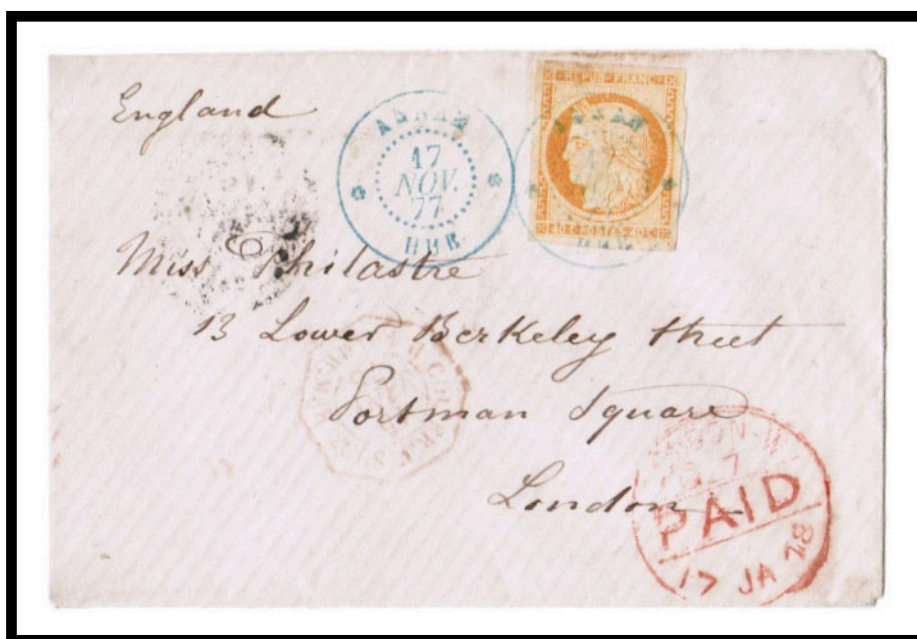 England
ANNAM
17
NOV.
77
HUE
REPUB. FRANC.
ANNAM
HUE
40 C. POSTES 40 C.
Miss Philastre
13 Lower Berkeley Street
Portman Square
London
LONDON-W
7
PAID
17 JA 78